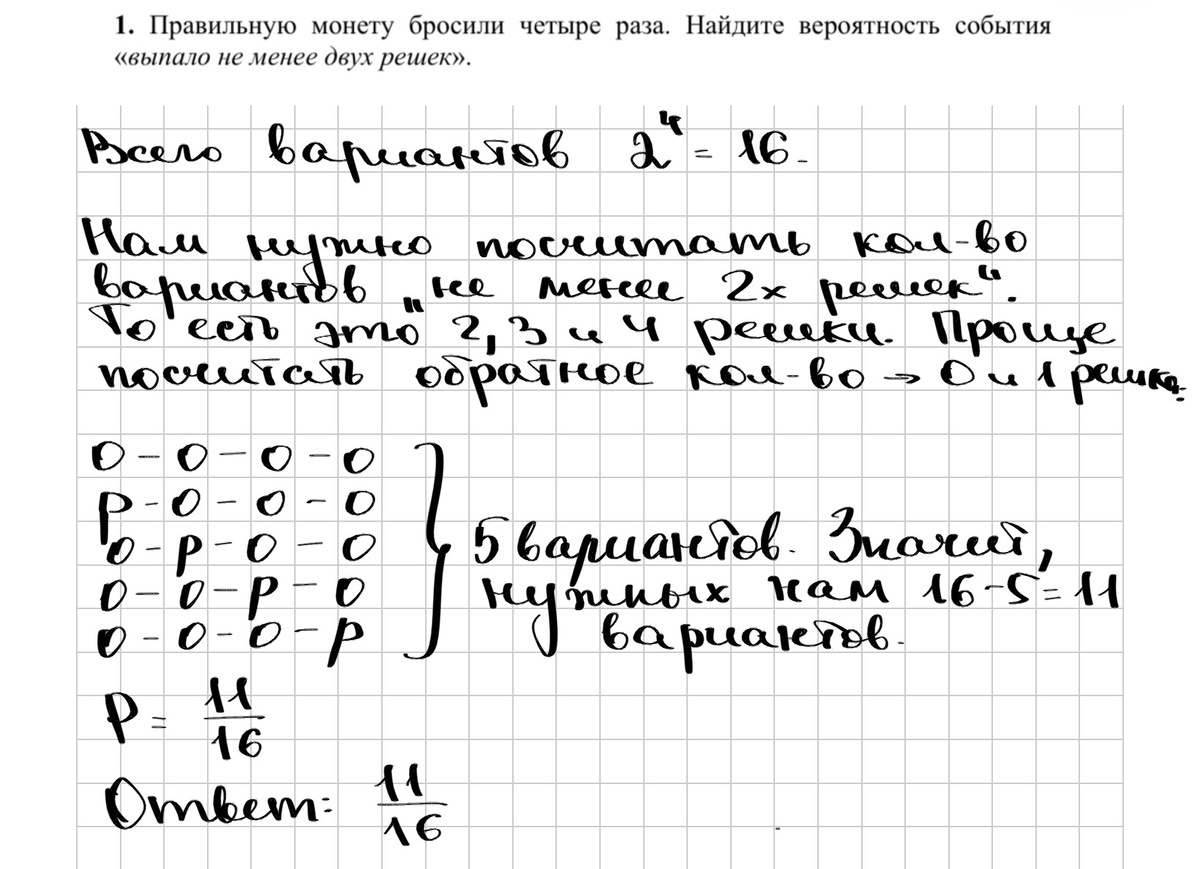 1. Правильную монету бросили четыре раза. Найдите вероятность события
«выпало не менее двух решек».
Всего вариантов 2⁴ = 16.
Нам нужно посчитать кол-во
вариантов „не менее 2х решек“.
То есть это 2, 3 и 4 решки. Проще
посчитать обратное кол-во → 0 и 1 решка.
О - О - О - О
Р - О - О - О
О - Р - О - О
О - О - Р - О
О - О - О - Р
5 вариантов. Значит,
нужных нам 16-5=11
вариантов.
P = 11/16
Ответ: 11/16